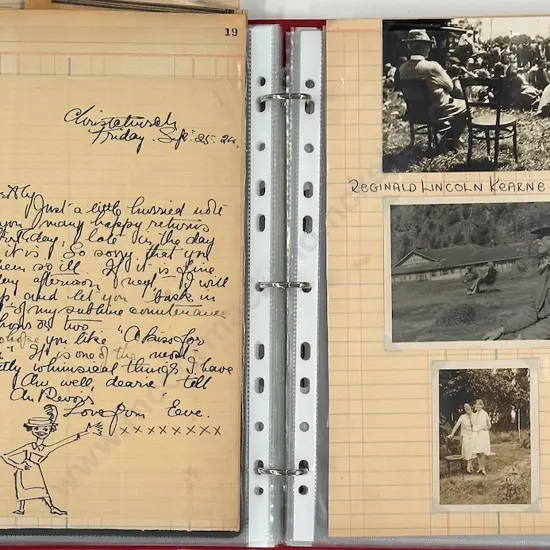 19
Christchurch
Friday. Sept. 25. 24.
Just a little hurried note
you many happy returns
birthday, late in the day
it is. So sorry that you
been so ill. If it is fine
day afternoon next I will
up and let you "bask in
of my sublime countenance
hours or two
you like "A kiss for
". It is one of the most
whimsical things I have
Au well, dearie, tell
Au Revoir
Love from "Eve.
x x x x x x x x
REGINALD LINCOLN KEARNE